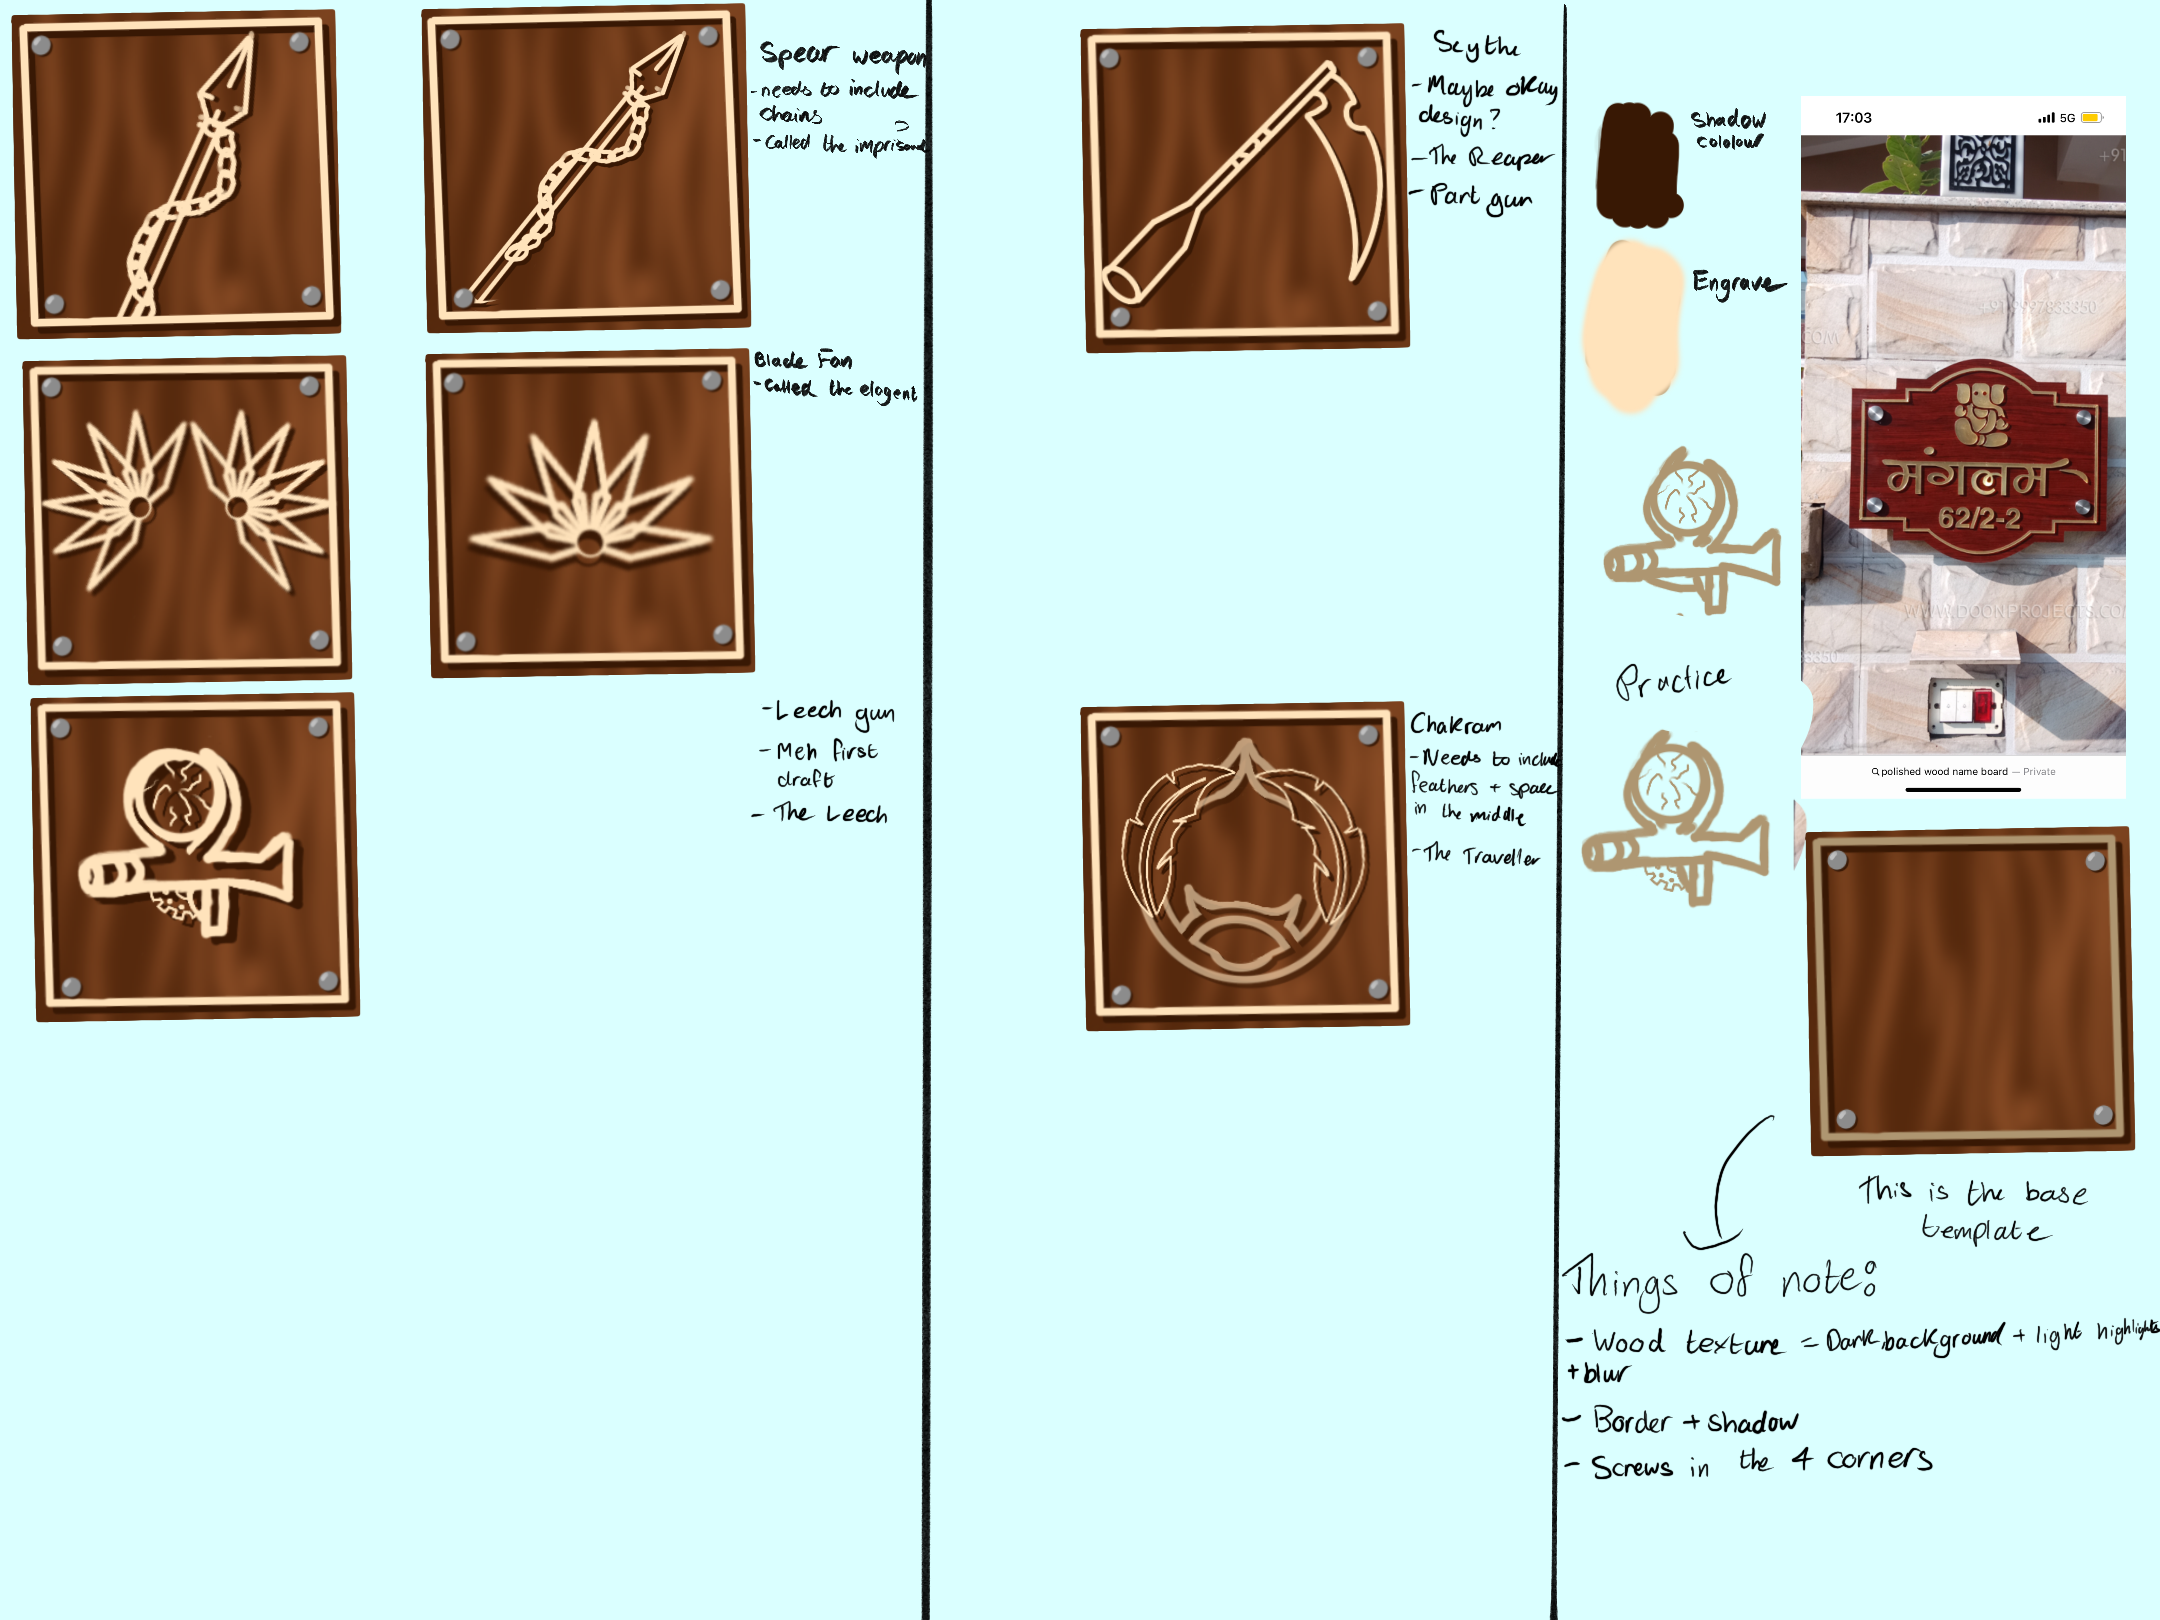 Spear weapon
- needs to include
chains
- Called the
Blade Fan
- Called the elogent
- Leech gun
- Meh first
draft
- The Leech
Scythe
- Maybe okay
design?
- The Reaper
- Part gun
Chakram
- Needs to include
feathers + space
in the middle
- The Traveller
Shadow
cololour
Engrave
Practice
17:03
5G
+91
+91 9997833350
COM
मंगलम
62/2-2
WWW.DOONPROJECTS.CO
3350
polished wood name board — Private
This is the base
template
Things of note:
- Wood texture = Dark background + light highlights
+ blur
- Border + shadow
- Screws in the 4 corners